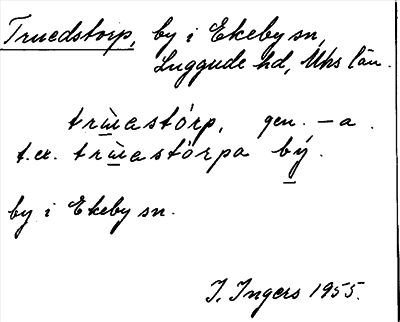 Truedstorp, by i Ekeby sn,
Luggude hd, Mhs län.
trùastórp, gen. -a.
t.ex. trùastórpa bý.
by i Ekeby sn.
I. Ingers 1955.